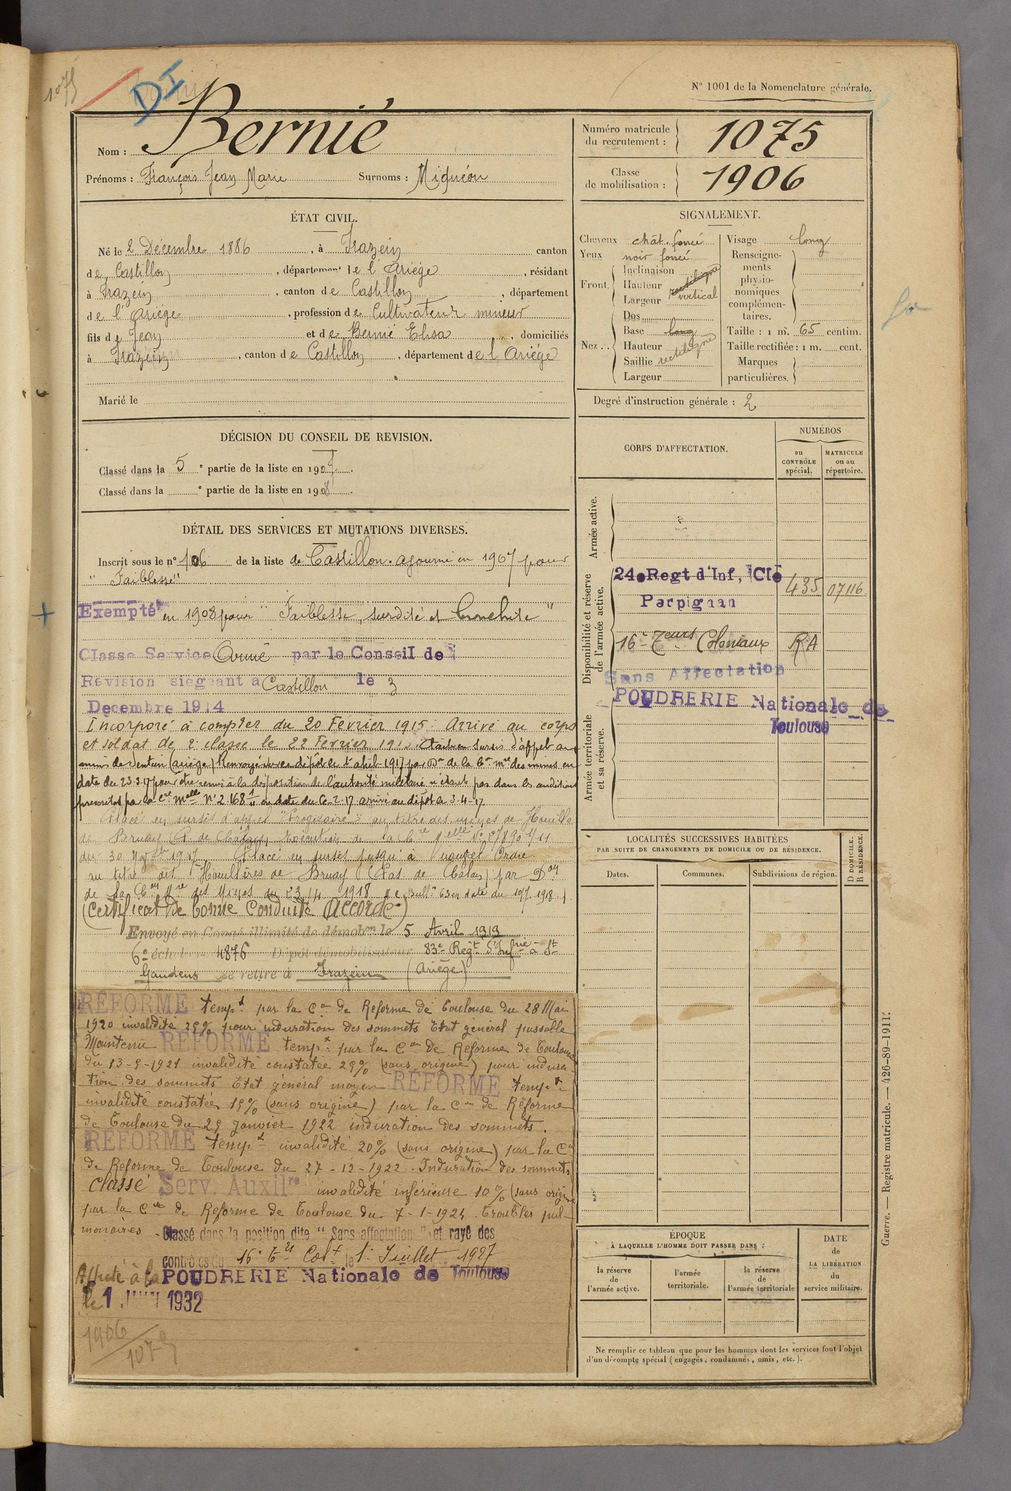 1075
DI
N° 1001 de la Nomenclature générale.
Nom : Bernié
Prénoms : François Jean Marie Surnoms : Miguéou
Numéro matricule du recrutement : 1075
Classe de mobilisation : 1906
ÉTAT CIVIL.
Né le 2 Décembre 1886, à Irazein canton
de Castillon, département de l'Ariège, résidant
à Irazein, canton de Castillon, département
de l'Ariège, profession de Cultivateur mineur
fils de Jean et de Bernié Elisa, domiciliés
à Irazein, canton de Castillon, département de l'Ariège
Marié le
SIGNALEMENT.
Cheveux chât. foncé
Yeux noir foncé
Front. Inclinaison rectiligne
Hauteur
Largeur vertical
Nez.. Dos
Base long
Hauteur
Saillie rectiligne
Largeur
Visage long
Renseignements physionomiques complémentaires.
Taille : 1 m. 65 centim.
Taille rectifiée : 1 m. cent.
Marques particulières.
Degré d'instruction générale : 2
DÉCISION DU CONSEIL DE REVISION.
Classé dans la 5e partie de la liste en 1907.
Classé dans la e partie de la liste en 1908.
DÉTAIL DES SERVICES ET MUTATIONS DIVERSES.
Inscrit sous le n° 106 de la liste de Castillon. ajourné en 1907 pour
"Faiblesse"
Exempté en 1908 pour "Faiblesse, surdité et bronchite"
Classe Service Armé par le Conseil de
Revision siégeant à Castillon le 3
Decembre 1914
Incorporé à compter du 20 Février 1915. Arrivé au corps
et soldat de 2e classe le 22 Février 1915. sursis d'appel aux
mines de Sentein (Ariège) Renvoyé au dépôt le 1er avril 1917 par Don de la Con mre des mines en
date du 23.3.17 pour être remis à la disposition de l'autorité militaire n'étant pas dans les conditions
prescrites par la cre melle N° 2.168 en date du 6-2-17 arrivé au dépôt le 3-4-17
Placé en sursis d'appel au titre des mines de Houille
de Bruay (P. de Calais)
du 30 1917. Placé en sursis jusqu'à nouvel Ordre
au titre des Houillères de Bruay (Pas de Calais) par Don
de la Con Mre des Mines du 23/4 1918
(Certificat de bonne Conduite Accordé)
Envoyé en Congé illimité de démobon le 5 Avril 1919
6e échelon 4876 Dépôt démobilisateur 83e Regt d'Infrie à St
Gaudens se retire à Irazein (Ariège)
REFORME tempre par la Con de Reforme de Toulouse du 28 Mai
1920 invalidité 25% pour induration des sommets Etat général passable
Maintenu REFORME tempre par la Con de Reforme de Toulouse
du 13-5-1921 invalidité constatée 25% (sans origine) pour indura
tion des sommets Etat général moyen REFORME tempre
invalidité constatée 15% (sans origine) par la Con de Réforme
de Toulouse du 25 janvier 1922 induration des sommets.
REFORME tempre invalidité 20% (sans origine) par la Con
de Reforme de Toulouse du 27-12-1922. Induration des sommets
classé Serv. Auxilre invalidité inférieure 10% (sans origine
par la Con de Reforme de Toulouse du 7-1-1925. Troubles pul-
monaires - Classé dans la position dite "Sans affectation" et rayé des
contrôles du 16e Trs Colx le 1er Juillet 1927
Affecté à la POUDRERIE Nationale de Toulouse
le 1 JUIN 1932
1906
1075
CORPS D'AFFECTATION.
NUMÉROS
au CONTRÔLE spécial.
MATRICULE ou au répertoire.
Armée active.
Disponibilité et réserve de l'armée active.
24e Regt d'Inf, ClE 435 07116
Perpignan
16e Teurs Coloniaux RA
Sans Affectation
Armée territoriale et sa réserve.
POUDRERIE Nationale de
Toulouse
LOCALITÉS SUCCESSIVES HABITÉES
PAR SUITE DE CHANGEMENTS DE DOMICILE OU DE RÉSIDENCE.
Dates. Communes. Subdivisions de région. D DOMICILE. R RÉSIDENCE.
ÉPOQUE
À LAQUELLE L'HOMME DOIT PASSER DANS :
la réserve de l'armée active.
l'armée territoriale.
la réserve de l'armée territoriale
DATE de LA LIBÉRATION du service militaire.
Ne remplir ce tableau que pour les hommes dont les services font l'objet
d'un décompte spécial (engagés, condamnés, omis, etc.).
Guerre. — Registre matricule. — 426-89-1911.